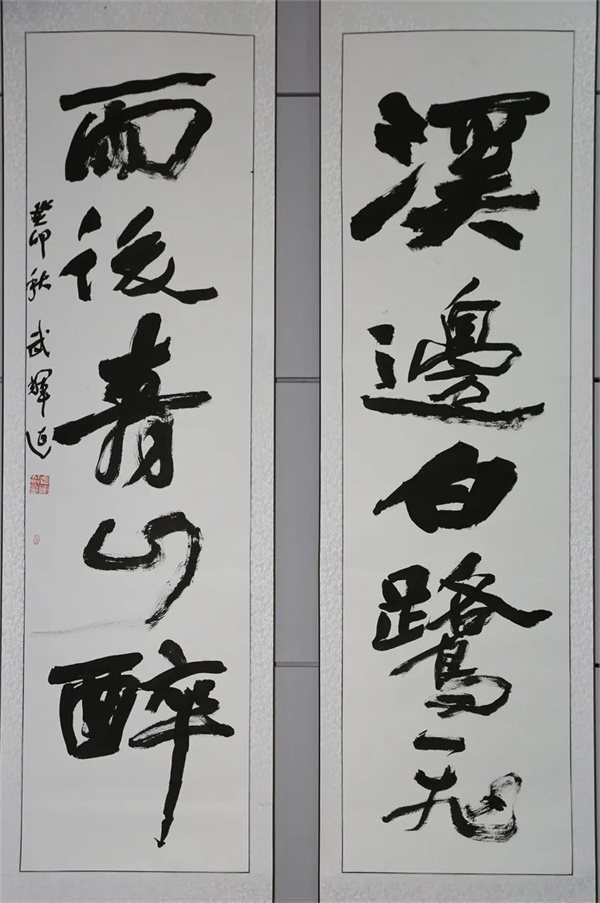 溪邊白鷺飛
雨後青山醉
癸卯秋 武輝